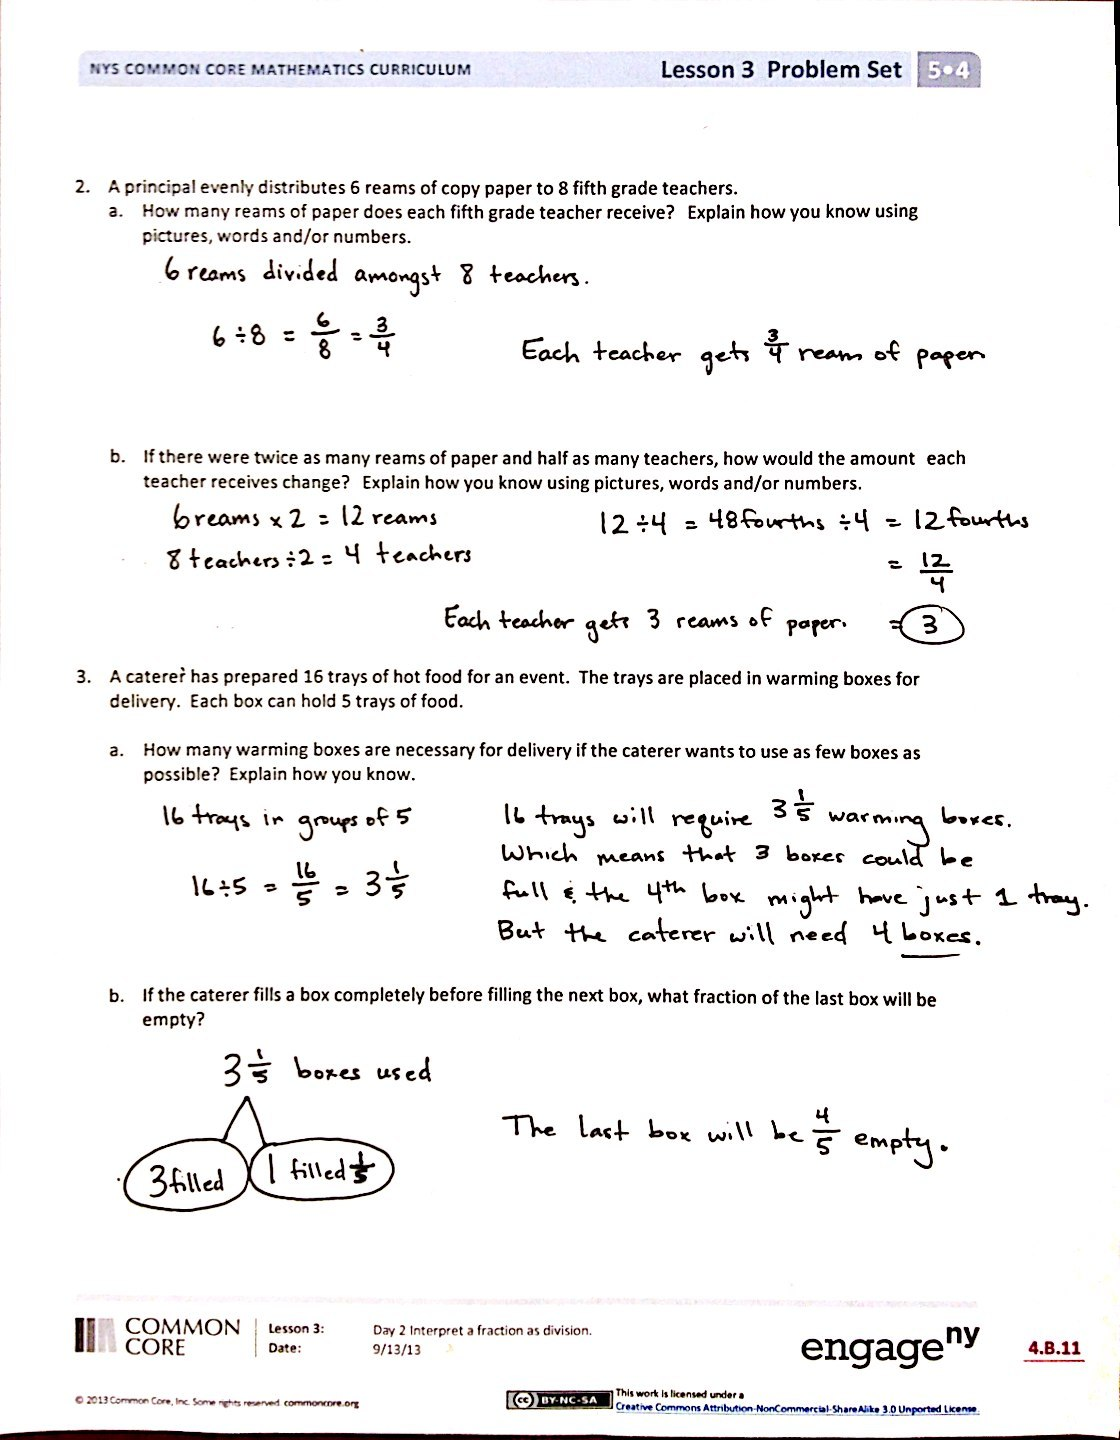 NYS COMMON CORE MATHEMATICS CURRICULUM Lesson 3 Problem Set 5•4
2. A principal evenly distributes 6 reams of copy paper to 8 fifth grade teachers.
a. How many reams of paper does each fifth grade teacher receive? Explain how you know using
pictures, words and/or numbers.
6 reams divided amongst 8 teachers.
6 ÷ 8 = 6/8 = 3/4
Each teacher gets 3/4 ream of paper
b. If there were twice as many reams of paper and half as many teachers, how would the amount each
teacher receives change? Explain how you know using pictures, words and/or numbers.
6 reams x 2 = 12 reams
8 teachers ÷ 2 = 4 teachers
12 ÷ 4 = 48 fourths ÷ 4 = 12 fourths
= 12/4
Each teacher gets 3 reams of paper. = 3
3. A caterer has prepared 16 trays of hot food for an event. The trays are placed in warming boxes for
delivery. Each box can hold 5 trays of food.
a. How many warming boxes are necessary for delivery if the caterer wants to use as few boxes as
possible? Explain how you know.
16 trays in groups of 5
16 ÷ 5 = 16/5 = 3 1/5
16 trays will require 3 1/5 warming boxes.
Which means that 3 boxes could be
full & the 4th box might have just 1 tray.
But the caterer will need 4 boxes.
b. If the caterer fills a box completely before filling the next box, what fraction of the last box will be
empty?
3 1/5 boxes used
3 filled 1 filled 1/5
The last box will be 4/5 empty.
COMMON CORE
Lesson 3: Day 2 Interpret a fraction as division.
Date: 9/13/13
engage ny
4.B.11
© 2013 Common Core, Inc. Some rights reserved. commoncore.org
(cc) BY-NC-SA
This work is licensed under a
Creative Commons Attribution-NonCommercial-ShareAlike 3.0 Unported License.